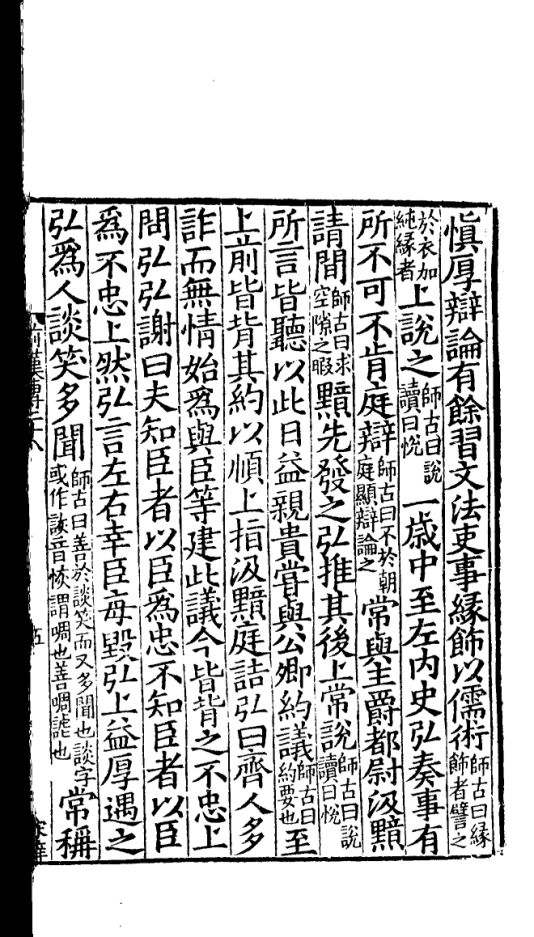 慎厚辯論有餘習文法吏事緣飾以儒術師古曰緣飾者譬之
於衣加純緣者上說之師古曰說讀曰悅一歲中至左內史弘奏事有
所不可不肯庭辯師古曰不於朝庭顯辯論之常與主爵都尉汲黯
請間師古曰求空隙之暇黯先發之弘推其後上常說師古曰說讀曰悅
所言皆聽以此日益親貴嘗與公卿約議師古曰約要也至
上前皆背其約以順上指汲黯庭詰弘曰齊人多
詐而無情始為與臣等建此議今皆背之不忠上
問弘弘謝曰夫知臣者以臣為忠不知臣者以臣
為不忠上然弘言左右幸臣每毀弘上益厚遇之
弘為人談笑多聞師古曰善於談笑而又多聞也談字或作詼音恢謂啁也善啁謔也常稱
前漢傳二十八
五